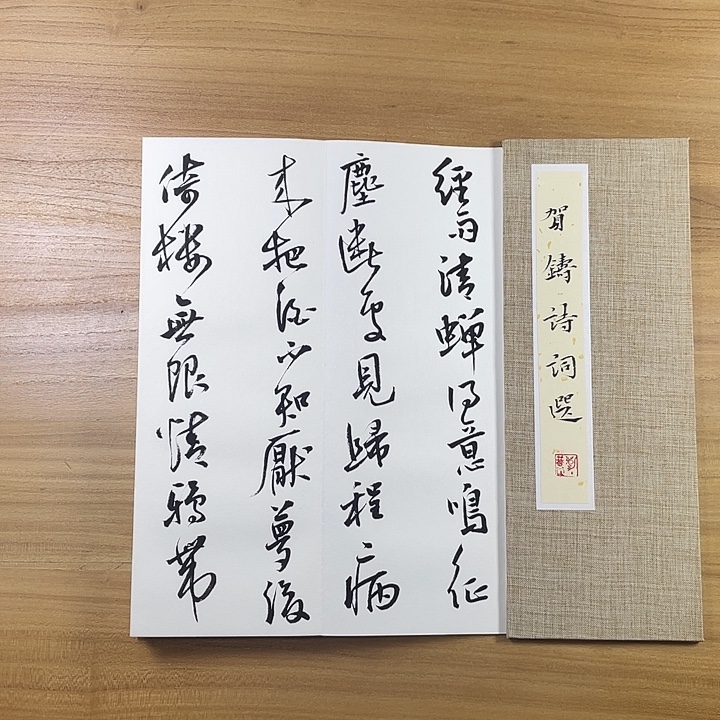 賀鑄詩詞選
經雨清蟬得意鳴征
塵斷處見歸程病
來把酒不知厭夢後
倚樓無限情鴉帶